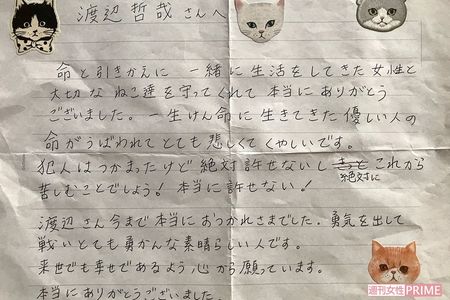 渡辺哲哉さんへ
命と引きかえに 一緒に生活をしてきた女性と
大切な ねこ達を守ってくれて 本当にありがとう
ございました。一生けん命に生きてきた優しい人の
命がうばわれてとても悲しくてくやしいです。
犯人はつかまったけど絶対許せないし きっと これから
絶対に
苦しむことでしょう! 本当に許せない!
渡辺さん今まで本当におつかれさまでした。勇気を出して
戦いとても勇かんな素晴らしい人です。
来世でも幸せであるよう 心から願っています。
本当にありがとうございました。
週刊女性PRIME